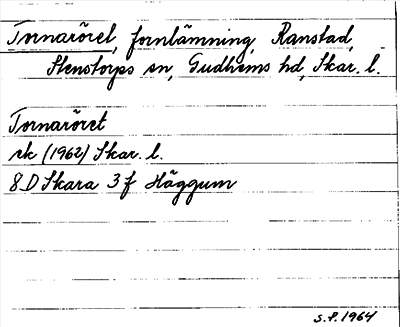 Tornaröret, fornlämning, Ranstad,
Stenstorps sn, Gudhems hd, Skar. l.
Tornaröret
rk (1962) Skar. l.
8 D Skara 3 f Häggum
S.F. 1964